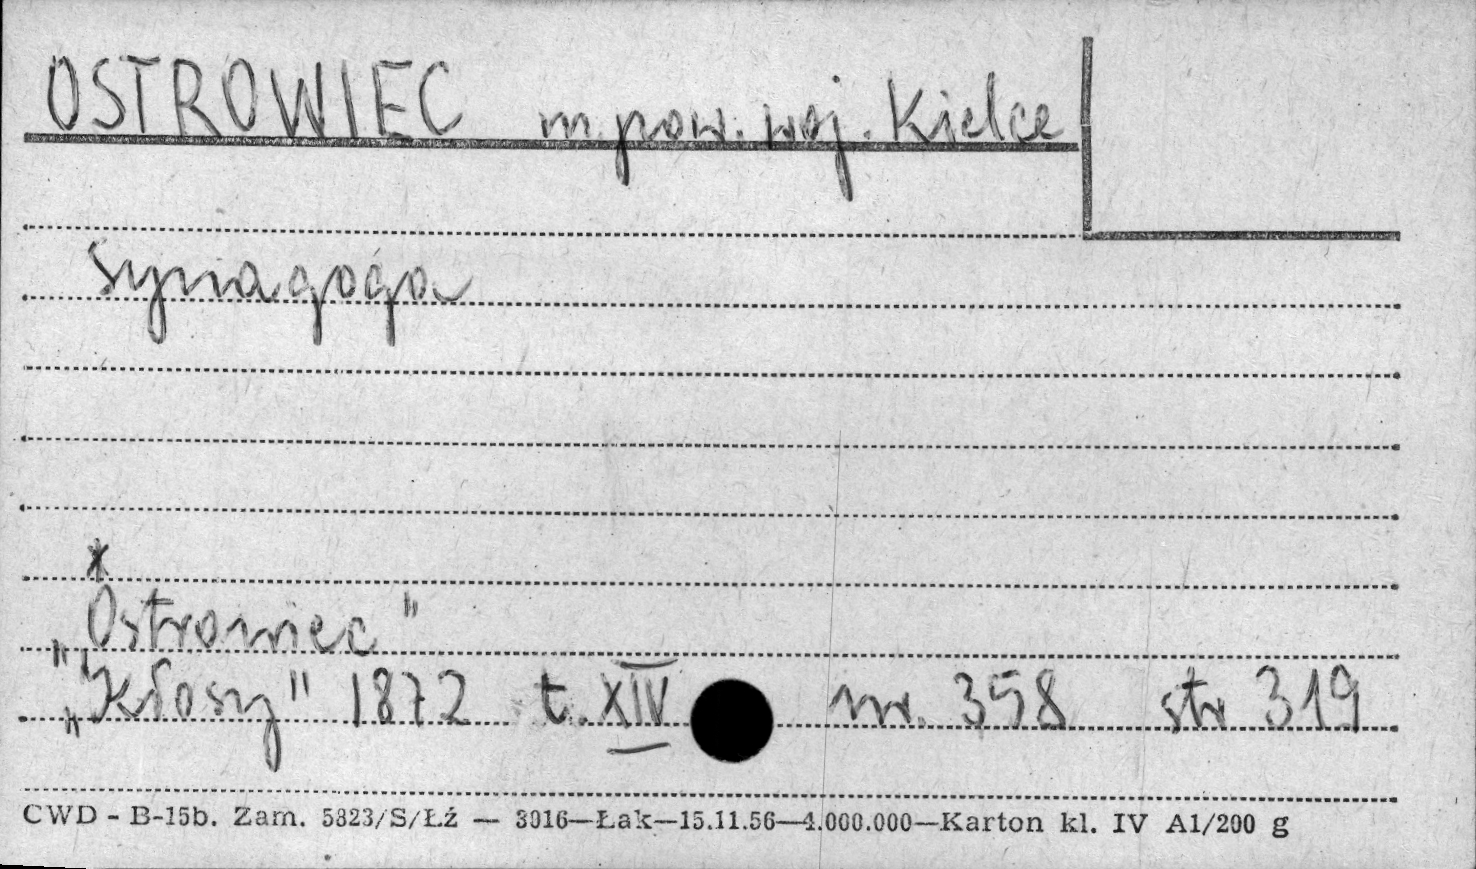 OSTROWIEC m. pow. woj. Kielce
Synagoga
*
„Ostrowiec"
„Kłosy" 1872 t. XIV nr. 358 str 319
CWD - B-15b. Zam. 5823/S/Łź — 3016—Łak—15.11.56—4.000.000—Karton kl. IV A1/200 g